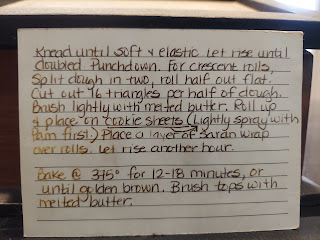 Knead until soft & elastic. Let rise until
doubled. Punchdown. For crescent rolls,
split dough in two, roll half out flat.
Cut out 16 triangles per half of dough.
Brush lightly with melted butter. Roll up
& place on cookie sheets (Lightly spray with
Pam first.) Place a layer of saran wrap
over rolls. Let rise another hour.
Bake @ 375° for 12-18 minutes, or
until golden brown. Brush tops with
melted butter.